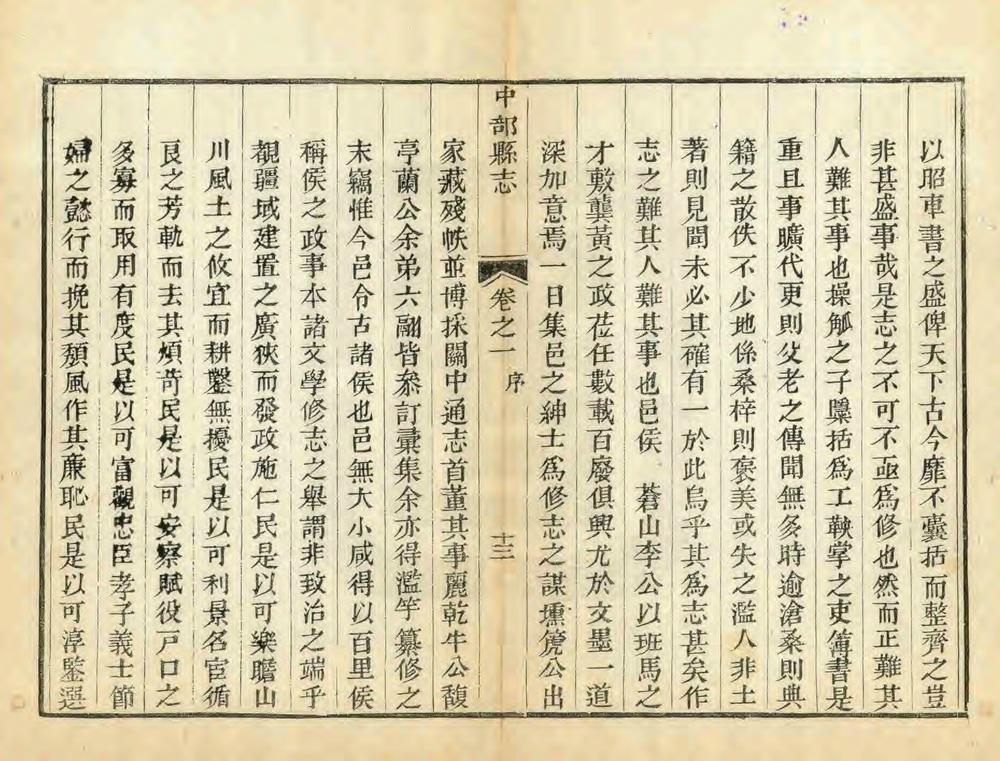 以昭車書之盛俾天下古今靡不囊括而整齊之豈
非甚盛事哉是志之不可不亟爲修也然而正難其
人難其事也操觚之子櫽括爲工鞅掌之吏簿書是
重且事曠代更則父老之傳聞無多時逾滄桑則典
籍之散佚不少地係桑梓則褒美或失之濫人非土
著則見聞未必其確有一於此烏乎其爲志甚矣作
志之難其人難其事也邑侯 蒼山李公以班馬之
才敷龔黃之政莅任數載百廢俱興尤於文墨一道
深加意焉一日集邑之紳士爲修志之謀壎箎公出
中部縣志
卷之一 序
十三
家藏殘帙並博採關中通志首董其事麗乾牛公馥
亭蘭公余弟六翮皆叅訂彙集余亦得濫竽纂修之
末竊惟今邑令古諸侯也邑無大小咸得以百里侯
稱侯之政事本諸文學修志之舉謂非致治之端乎
覩疆域建置之廣狹而發政施仁民是以可樂瞻山
川風土之攸宜而耕鑿無擾民是以可利景名宦循
良之芳軌而去其煩苛民是以可安察賦役戸口之
多寡而取用有度民是以可富觀忠臣孝子義士節
婦之懿行而挽其頽風作其廉恥民是以可淳鑒選